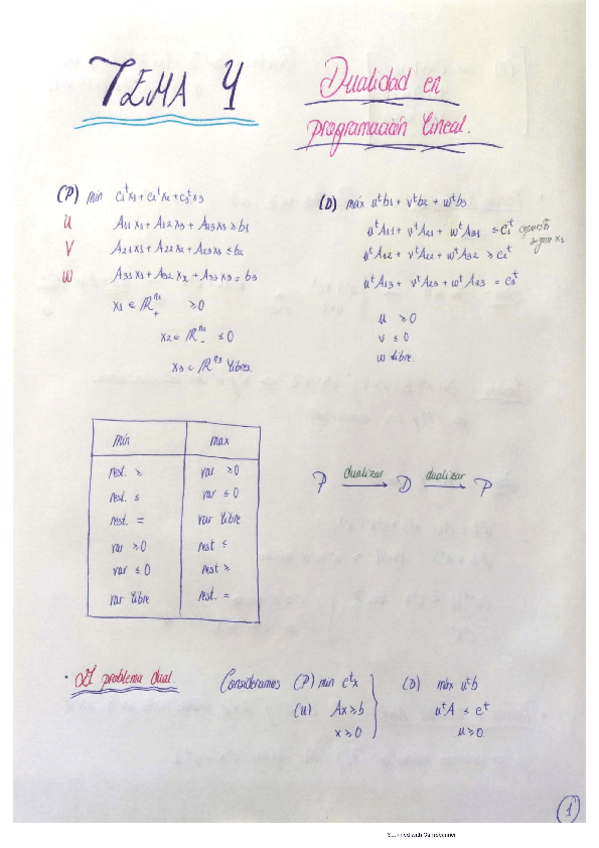 TEMA 4
Dualidad en
programación lineal.
(P) min c₁ᵗx₁ + c₂ᵗx₂ + c₃ᵗx₃
u A₁₁x₁ + A₁₂x₂ + A₁₃x₃ ≥ b₁
v A₂₁x₁ + A₂₂x₂ + A₂₃x₃ ≤ b₂
w A₃₁x₁ + A₃₂x₂ + A₃₃x₃ = b₃
x₁ ∈ ℝ₊ⁿ¹ ≥0
x₂ ∈ ℝ₋ⁿ² ≤0
x₃ ∈ ℝⁿ³ libres.
(D) máx uᵗb₁ + vᵗb₂ + wᵗb₃
uᵗA₁₁ + vᵗA₂₁ + wᵗA₃₁ ≤ c₁ᵗ
uᵗA₁₂ + vᵗA₂₂ + wᵗA₃₂ ≥ c₂ᵗ
uᵗA₁₃ + vᵗA₂₃ + wᵗA₃₃ = c₃ᵗ
u ≥0
v ≤0
w libre.
min max
rest. ≥ var ≥0
rest. ≤ var ≤0
rest. = var libre
var ≥0 rest ≤
var ≤0 rest ≥
var libre rest. =
P dualizar D dualizar P
· El problema dual. Consideramos (P) min cᵗx (D) máx uᵗb
(u) Ax≥b uᵗA ≤ cᵗ
x≥0 u≥0
1